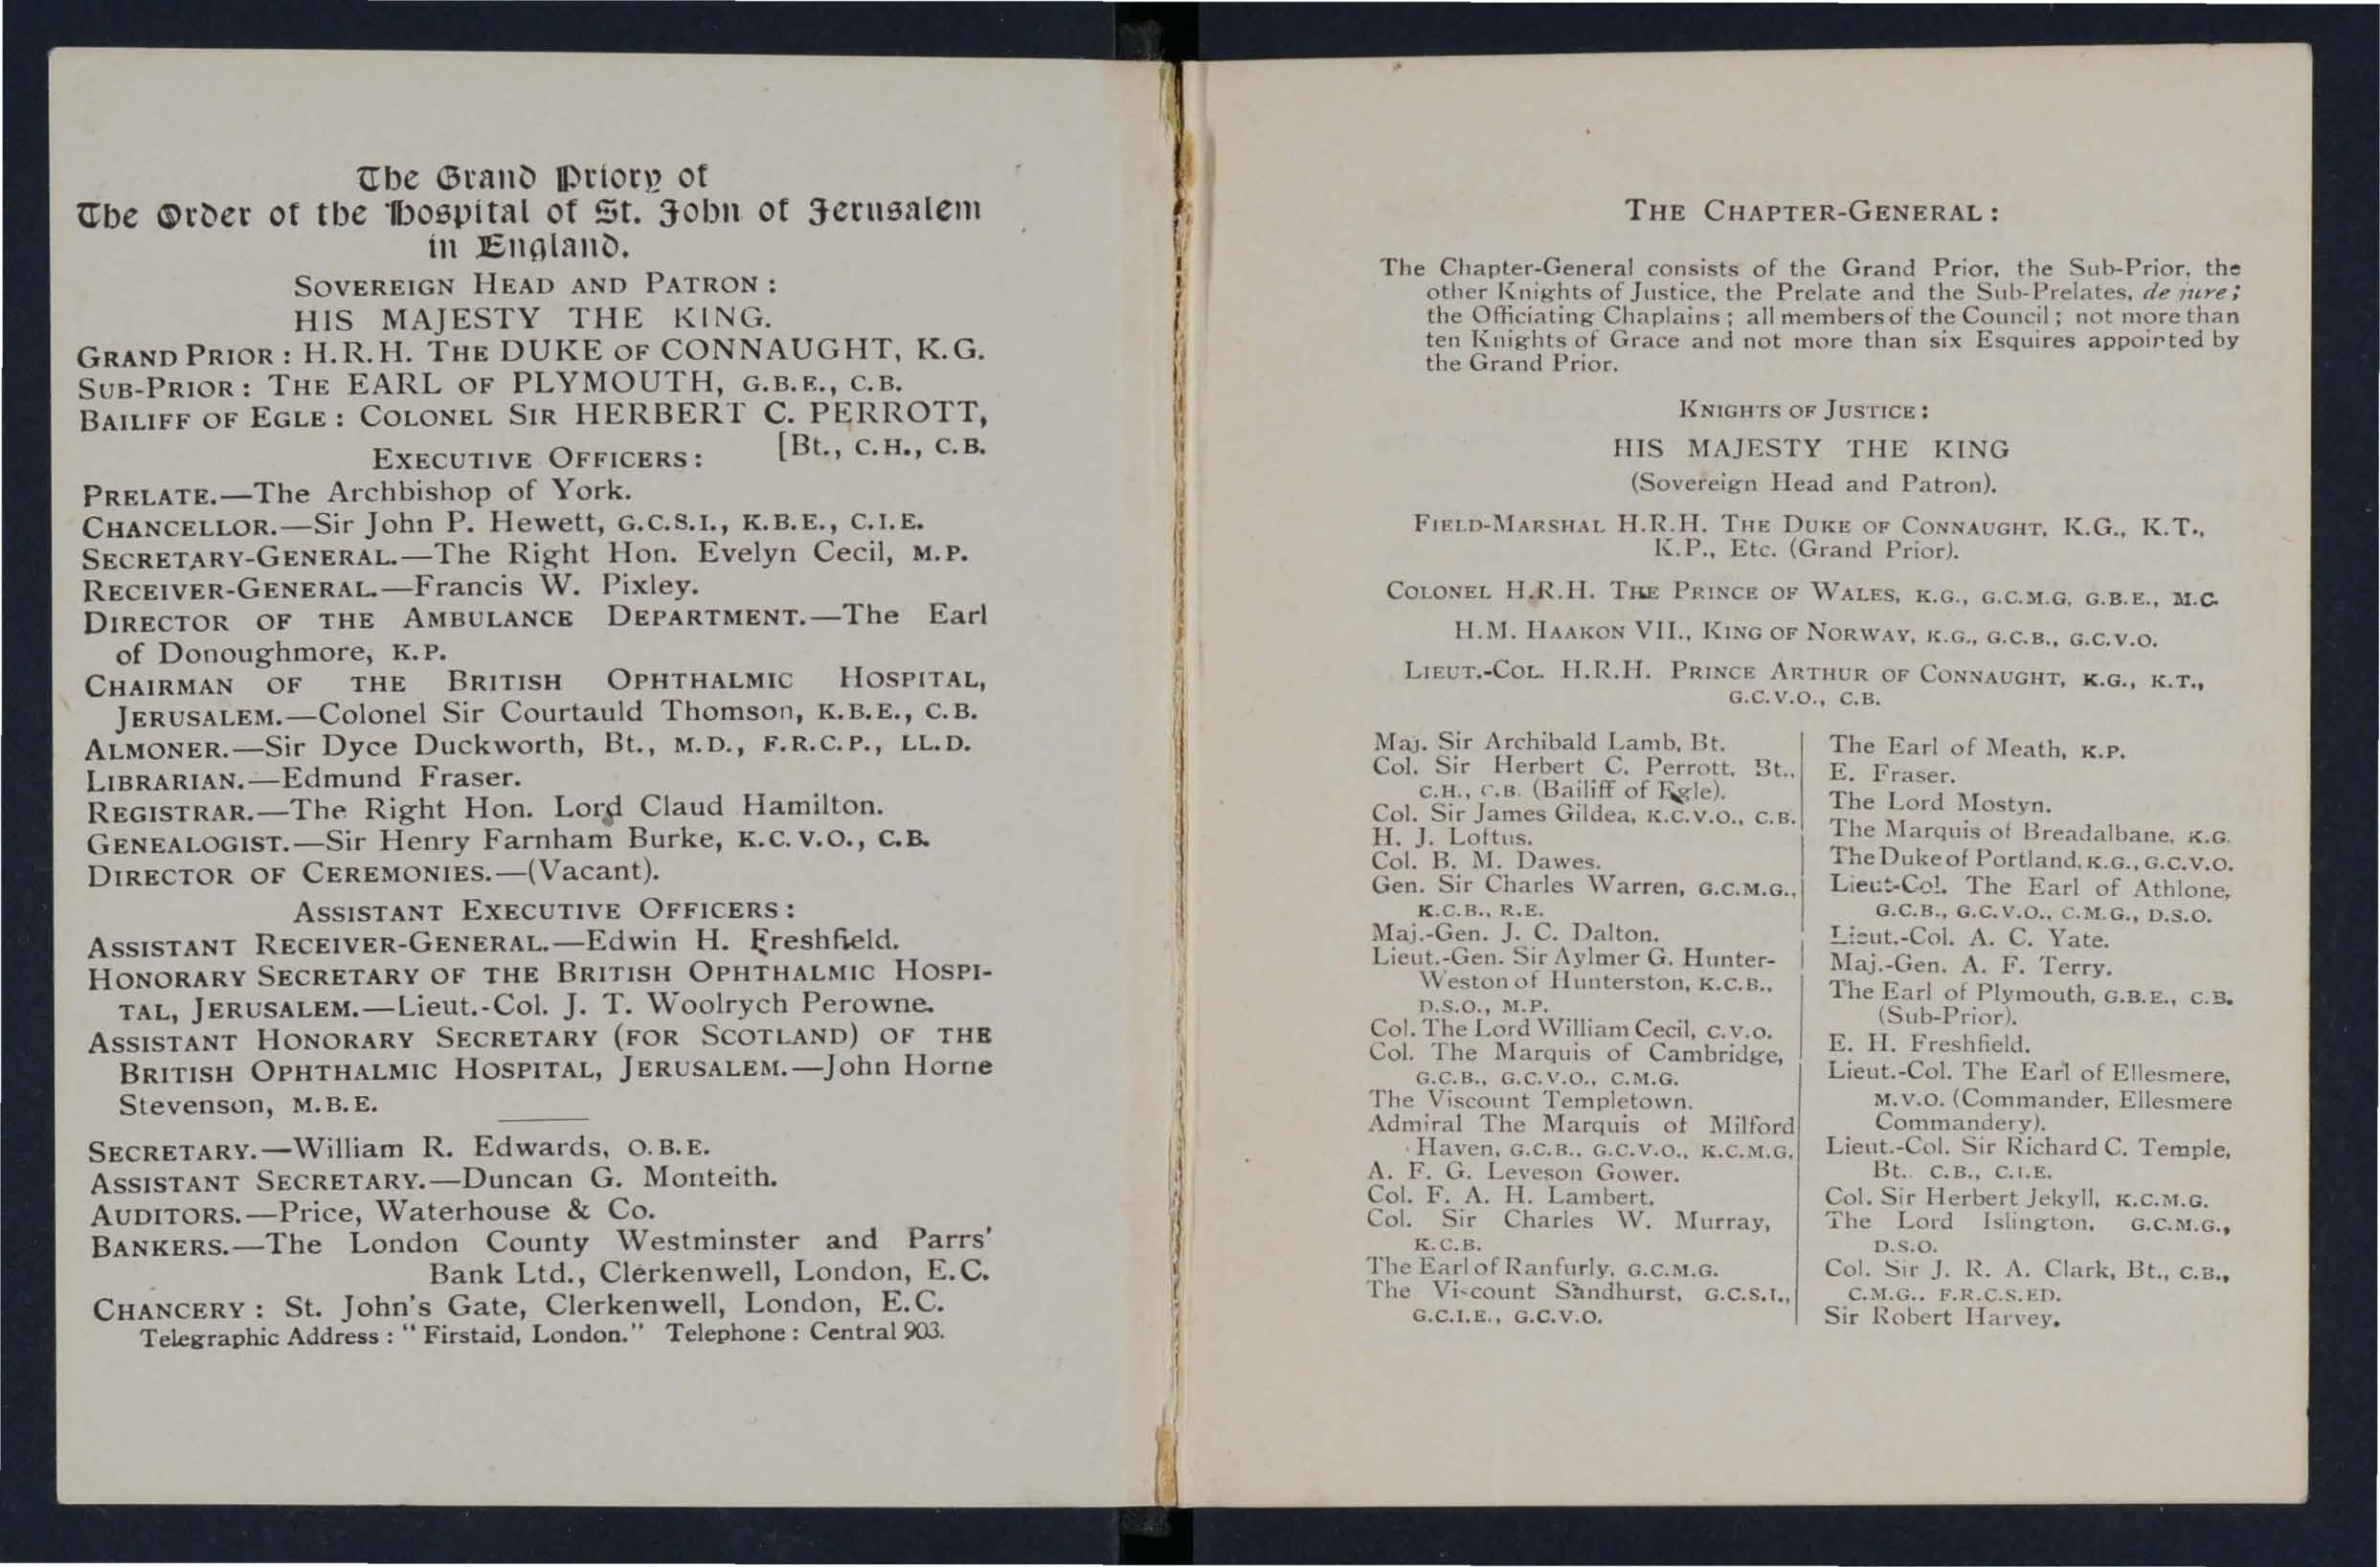 The Grand Priory of
The Order of the Hospital of St. John of Jerusalem
in England.
SOVEREIGN HEAD AND PATRON :
HIS MAJESTY THE KING.
GRAND PRIOR : H.R.H. THE DUKE OF CONNAUGHT, K.G.
SUB-PRIOR : THE EARL OF PLYMOUTH, G.B.E., C.B.
BAILIFF OF EGLE : COLONEL SIR HERBERT C. PERROTT,
[Bt., C.H., C.B.
EXECUTIVE OFFICERS :
PRELATE.—The Archbishop of York.
CHANCELLOR.—Sir John P. Hewett, G.C.S.I., K.B.E., C.I.E.
SECRETARY-GENERAL.—The Right Hon. Evelyn Cecil, M.P.
RECEIVER-GENERAL.—Francis W. Pixley.
DIRECTOR OF THE AMBULANCE DEPARTMENT.—The Earl
of Donoughmore, K.P.
CHAIRMAN OF THE BRITISH OPHTHALMIC HOSPITAL,
JERUSALEM.—Colonel Sir Courtauld Thomson, K.B.E., C.B.
ALMONER.—Sir Dyce Duckworth, Bt., M.D., F.R.C.P., LL.D.
LIBRARIAN.—Edmund Fraser.
REGISTRAR.—The Right Hon. Lord Claud Hamilton.
GENEALOGIST.—Sir Henry Farnham Burke, K.C.V.O., C.B.
DIRECTOR OF CEREMONIES.—(Vacant).
ASSISTANT EXECUTIVE OFFICERS :
ASSISTANT RECEIVER-GENERAL.—Edwin H. Freshfield.
HONORARY SECRETARY OF THE BRITISH OPHTHALMIC HOSPI-
TAL, JERUSALEM.—Lieut.-Col. J. T. Woolrych Perowne.
ASSISTANT HONORARY SECRETARY (FOR SCOTLAND) OF THE
BRITISH OPHTHALMIC HOSPITAL, JERUSALEM.—John Horne
Stevenson, M.B.E.
SECRETARY.—William R. Edwards, O.B.E.
ASSISTANT SECRETARY.—Duncan G. Monteith.
AUDITORS.—Price, Waterhouse & Co.
BANKERS.—The London County Westminster and Parrs'
Bank Ltd., Clerkenwell, London, E.C.
CHANCERY : St. John's Gate, Clerkenwell, London, E.C.
Telegraphic Address : "Firstaid, London." Telephone : Central 903.
THE CHAPTER-GENERAL :
The Chapter-General consists of the Grand Prior, the Sub-Prior, the
other Knights of Justice, the Prelate and the Sub-Prelates, de jure ;
the Officiating Chaplains ; all members of the Council ; not more than
ten Knights of Grace and not more than six Esquires appointed by
the Grand Prior.
KNIGHTS OF JUSTICE :
HIS MAJESTY THE KING
(Sovereign Head and Patron).
FIELD-MARSHAL H.R.H. THE DUKE OF CONNAUGHT, K.G., K.T.,
K.P., Etc. (Grand Prior).
COLONEL H.R.H. THE PRINCE OF WALES, K.G., G.C.M.G, G.B.E., M.C.
H.M. HAAKON VII., KING OF NORWAY, K.G., G.C.B., G.C.V.O.
LIEUT.-COL. H.R.H. PRINCE ARTHUR OF CONNAUGHT, K.G., K.T.,
G.C.V.O., C.B.
Maj. Sir Archibald Lamb, Bt.
Col. Sir Herbert C. Perrott, Bt.,
C.H., C.B. (Bailiff of Egle).
Col. Sir James Gildea, K.C.V.O., C.B.
H. J. Loftus.
Col. B. M. Dawes.
Gen. Sir Charles Warren, G.C.M.G.,
K.C.B., R.E.
Maj.-Gen. J. C. Dalton.
Lieut.-Gen. Sir Aylmer G. Hunter-
Weston of Hunterston, K.C.B.,
D.S.O., M.P.
Col. The Lord William Cecil, C.V.O.
Col. The Marquis of Cambridge,
G.C.B., G.C.V.O., C.M.G.
The Viscount Templetown.
Admiral The Marquis of Milford
Haven, G.C.B., G.C.V.O., K.C.M.G.
A. F. G. Leveson Gower.
Col. F. A. H. Lambert.
Col. Sir Charles W. Murray,
K.C.B.
The Earl of Ranfurly, G.C.M.G.
The Viscount Sandhurst, G.C.S.I.,
G.C.I.E., G.C.V.O.
The Earl of Meath, K.P.
E. Fraser.
The Lord Mostyn.
The Marquis of Breadalbane, K.G.
The Duke of Portland, K.G., G.C.V.O.
Lieut-Col. The Earl of Athlone,
G.C.B., G.C.V.O., C.M.G., D.S.O.
Lieut.-Col. A. C. Yate.
Maj.-Gen. A. F. Terry.
The Earl of Plymouth, G.B.E., C.B.
(Sub-Prior).
E. H. Freshfield.
Lieut.-Col. The Earl of Ellesmere,
M.V.O. (Commander, Ellesmere
Commandery).
Lieut.-Col. Sir Richard C. Temple,
Bt. C.B., C.I.E.
Col. Sir Herbert Jekyll, K.C.M.G.
The Lord Islington, G.C.M.G.,
D.S.O.
Col. Sir J. R. A. Clark, Bt., C.B.,
C.M.G., F.R.C.S.ED.
Sir Robert Harvey.